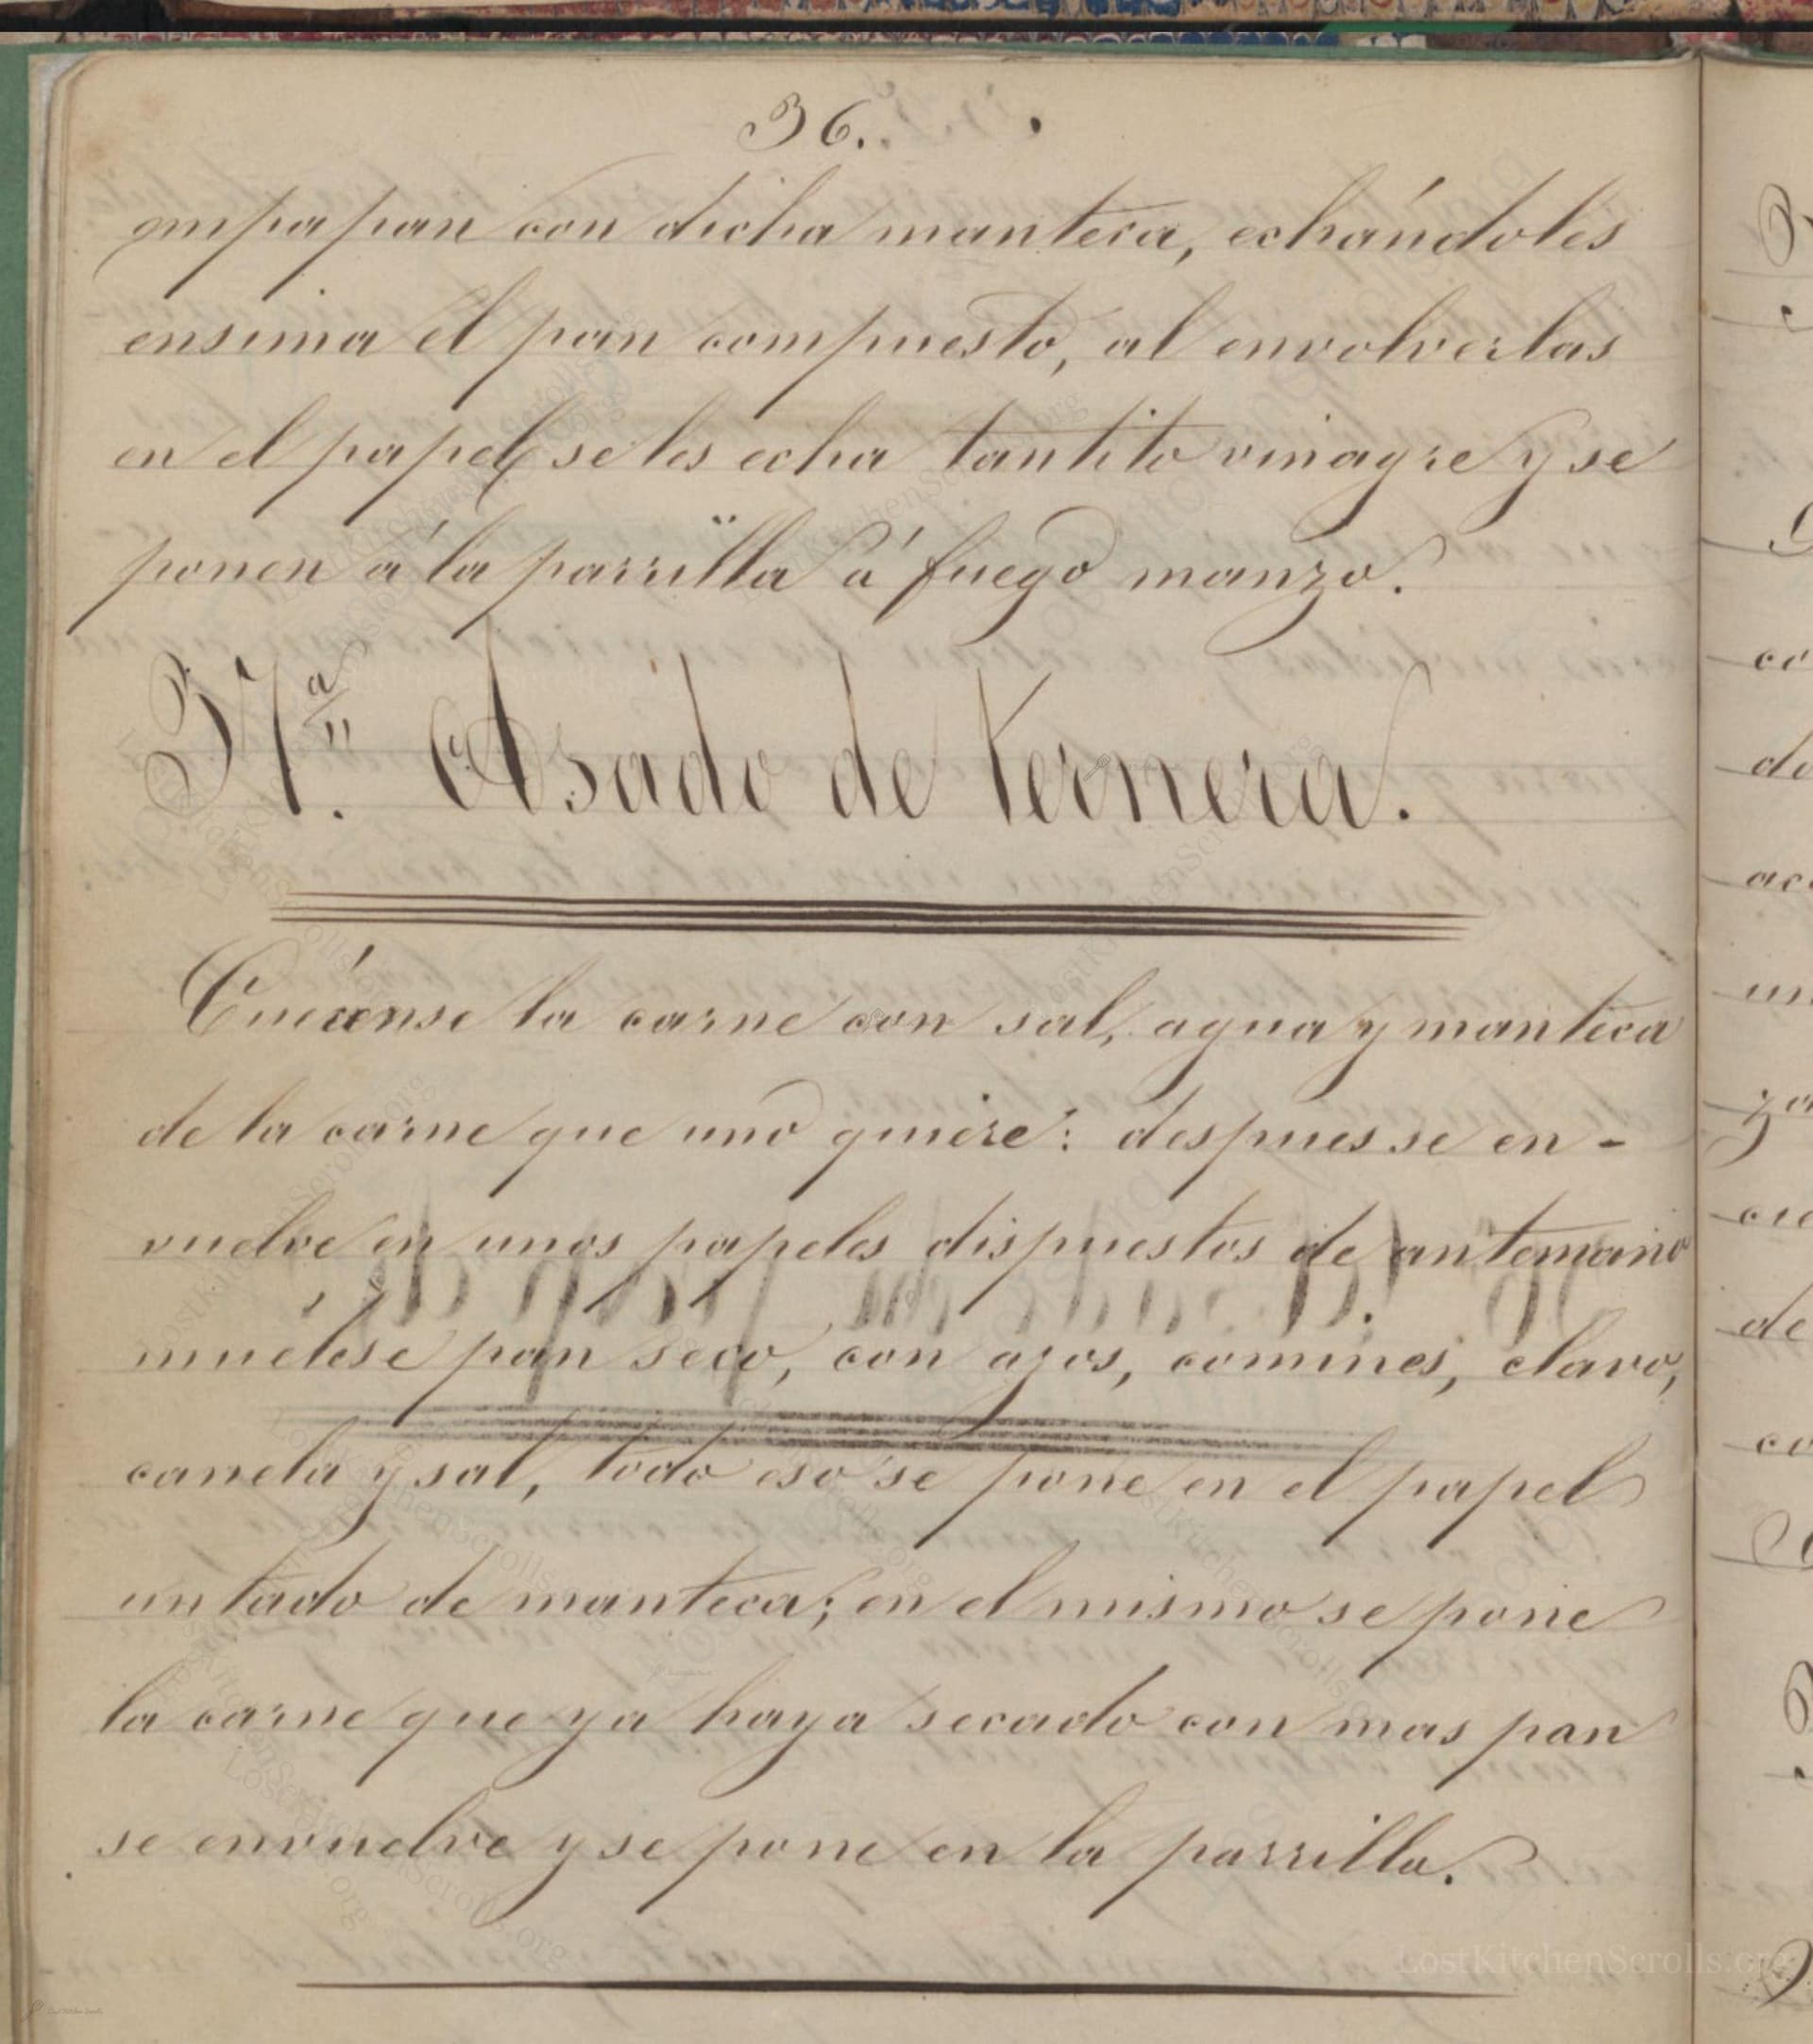 36.
empapan con dicha manteca, echándoles
ensima el pan compuesto, al envolverlas
en el papel se les echa tantito vinagre y se
ponen á la parrilla á fuego manzo.
37ª. Asado de ternera.
la carne con sal, agua y manteca
de la carne que uno quiere: despues se en-
vuelve en unos papeles dispuestos de antemano
muélese pan seco, con ajos, comines, clavo,
canela y sal, todo eso se pone en el papel
untado de manteca; en el mismo se pone
la carne que ya haya secado con mas pan
se envuelve y se pone en la parrilla.
LostKitchenScrolls.org